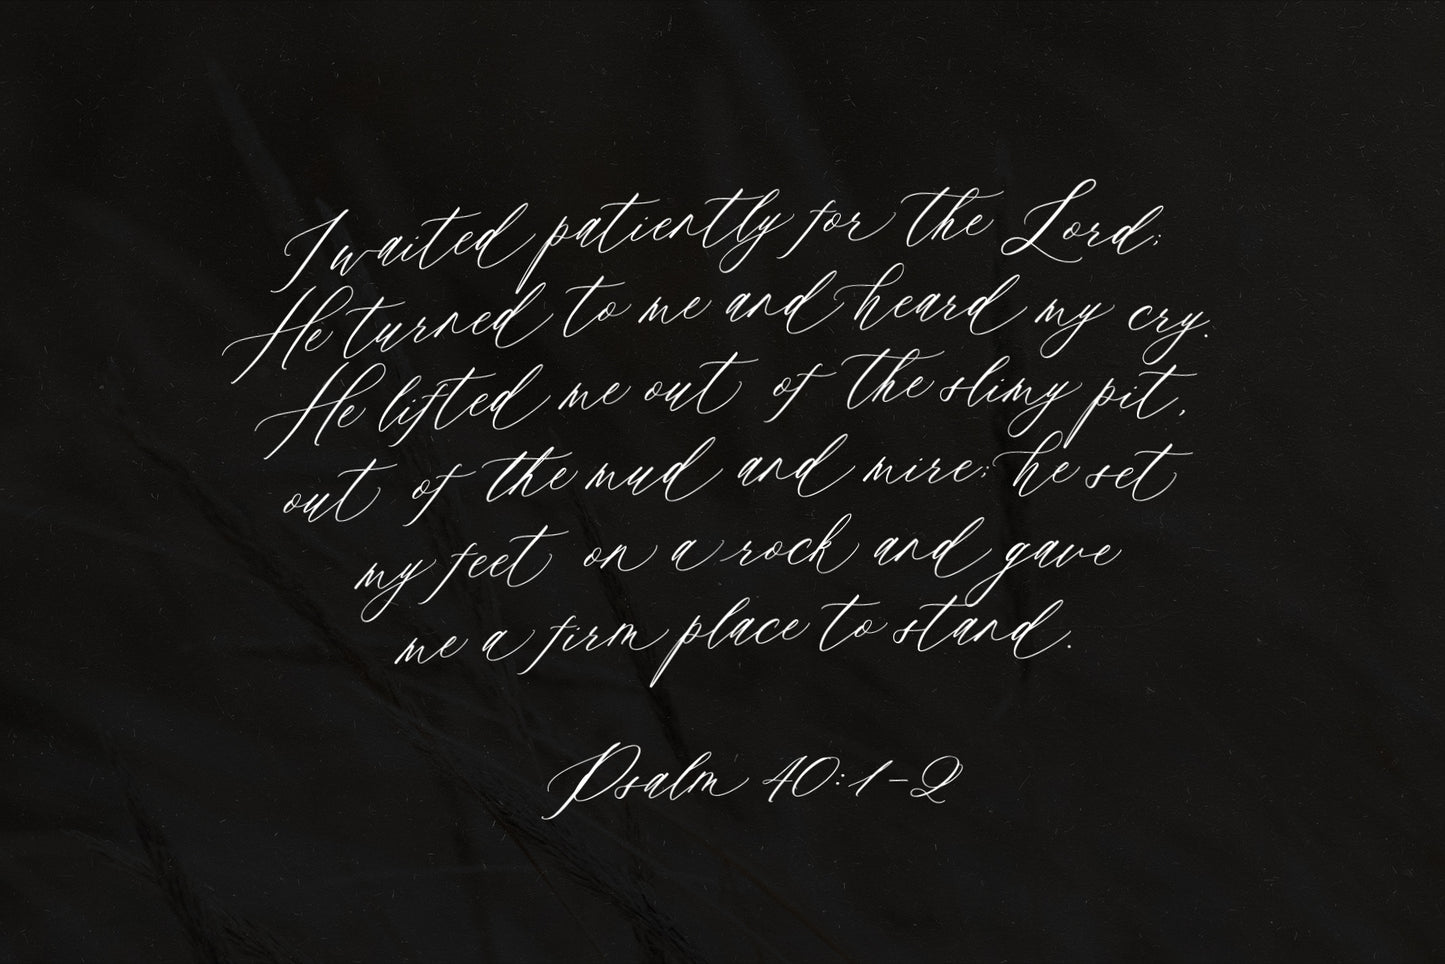 I waited patiently for the Lord;
He turned to me and heard my cry.
He lifted me out of the slimy pit,
out of the mud and mire; he set
my feet on a rock and gave
me a firm place to stand.
Psalm 40:1-2